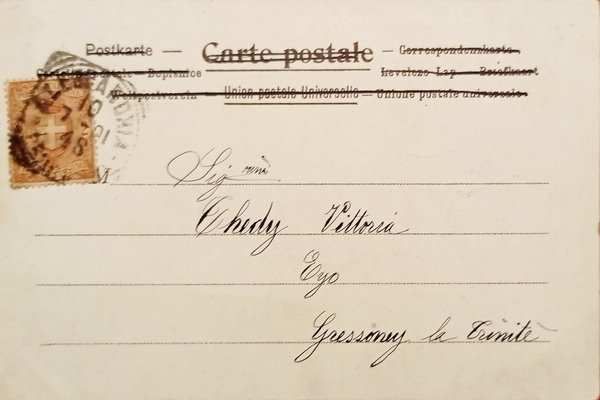 Postkarte — Carte postale — Correspondenzkarte
Cartolina postale — Dopisnice Levelezo Lap — Briefkaart
Weltpostverein — Union postale Universelle — Unione postale universale
10
01
M Sig
Thedy Vittoria
Gressoney la Trinité